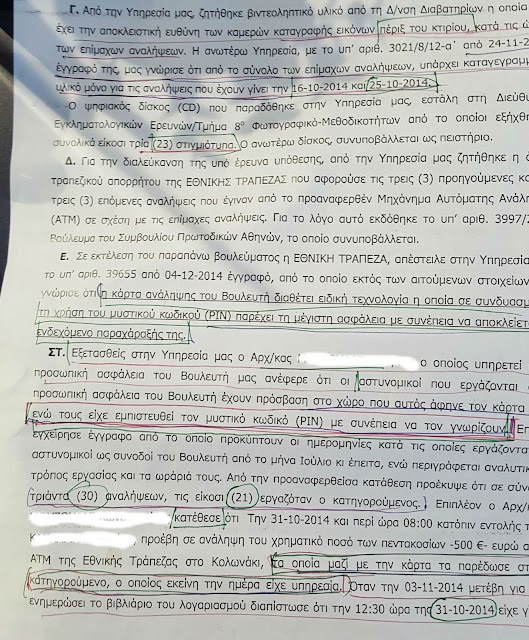 Γ. Από την Υπηρεσία μας, ζητήθηκε βιντεοληπτικό υλικό από τη Δ/νση Διαβατηρίων η οποία
έχει την αποκλειστική ευθύνη των καμερών καταγραφής εικόνων πέριξ του κτιρίου, κατά τις
των επίμαχων αναλήψεων. Η ανωτέρω Υπηρεσία, με το υπ' αριθ. 3021/8/12-α΄ από 24-11-2
έγγραφό της, μας γνώρισε ότι από το σύνολο των επίμαχων αναλήψεων, υπάρχει καταγεγραμ
υλικό μόνο για τις αναλήψεις που έχουν γίνει την 16-10-2014 και 25-10-2014.
Ο ψηφιακός δίσκος (CD) που παραδόθηκε στην Υπηρεσία μας, εστάλη στη Διεύθυ
Εγκληματολογικών Ερευνών/Τμήμα 8° Φωτογραφικό-Μεθοδικοτήτων από το οποίοι εξήχθη
συνολικά είκοσι τρία (23) στιγμιότυπα. Ο ανωτέρω δίσκος, συνυποβάλλεται ως πειστήριο.
Δ. Για την διαλεύκανση της υπό έρευνα υπόθεσης, από την Υπηρεσία μας ζητήθηκε η
τραπεζικού απορρήτου της ΕΘΝΙΚΗΣ ΤΡΑΠΕΖΑΣ που αφορούσε τις τρεις (3) προηγούμενες κα
τρεις (3) επόμενες αναλήψεις που έγιναν από το προαναφερθέν Μηχάνημα Αυτόματης Ανάλ
(ΑΤΜ) σε σχέση με τις επίμαχες αναλήψεις. Για το λόγο αυτό εκδόθηκε το υπ' αριθ. 3997/2
Βούλευμα του Συμβουλίου Πρωτοδικών Αθηνών, το οποίο συνυποβάλλεται.
Ε. Σε εκτέλεση του παραπάνω βουλεύματος η ΕΘΝΙΚΗ ΤΡΑΠΕΖΑ, απέστειλε στην Υπηρεσία
το υπ' αριθ. 39655 από 04-12-2014 έγγραφό, από το οποίο εκτός των αιτούμενων στοιχείων
γνώρισε ότι η κάρτα ανάληψης του Βουλευτή διαθέτει ειδική τεχνολογία η οποία σε συνδυασμ
τη χρήση του μυστικού κωδικού (PIN) παρέχει τη μέγιστη ασφάλεια με συνέπεια να αποκλείετ
ενδεχόμενο παραχάραξής της.
ΣΤ. Εξετασθείς στην Υπηρεσία μας ο Αρχ/κας ο οποίος υπηρετεί
προσωπική ασφάλεια του Βουλευτή μας ανέφερε ότι οι αστυνομικοί που εργάζονται
προσωπική ασφάλεια του Βουλευτή έχουν πρόσβαση στο χώρο που αυτός άφηνε τον κάρτα
ενώ τους είχε εμπιστευθεί τον μυστικό κωδικό (PIN) με συνέπεια να τον γνωρίζουν. Επ
εγχείρησε έγγραφο από το οποίο προκύπτουν οι ημερομηνίες κατά τις οποίες εργάζοντα
αστυνομικοί ως συνοδοί του Βουλευτή από το μήνα Ιούλιο κι έπειτα, ενώ περιγράφεται αναλυτικ
τρόπος εργασίας και τα ωράριά τους. Από την προαναφερθείσα κατάθεση προέκυψε ότι σε σύν
τριάντα (30) αναλήψεων, τις είκοσι (21) εργαζόταν ο κατηγορούμενος. Επιπλέον ο Αρχ/κ
κατέθεσε ότι Την 31-10-2014 και περί ώρα 08:00 κατόπιν εντολής τ
προέβη σε ανάληψη του χρηματικό ποσό των πεντακοσίων -500 €- ευρώ α
ΑΤΜ της Εθνικής Τράπεζας στο Κολωνάκι, τα οποία μαζί με την κάρτα τα παρέδωσε στ
κατηγορούμενο, ο οποίος εκείνη την ημέρα είχε υπηρεσία. Όταν την 03-11-2014 μετέβη για
ενημερώσει το βιβλιάριο του λογαριασμού διαπίστωσε ότι την 12:30 ώρα της 31-10-2014 είχε γ